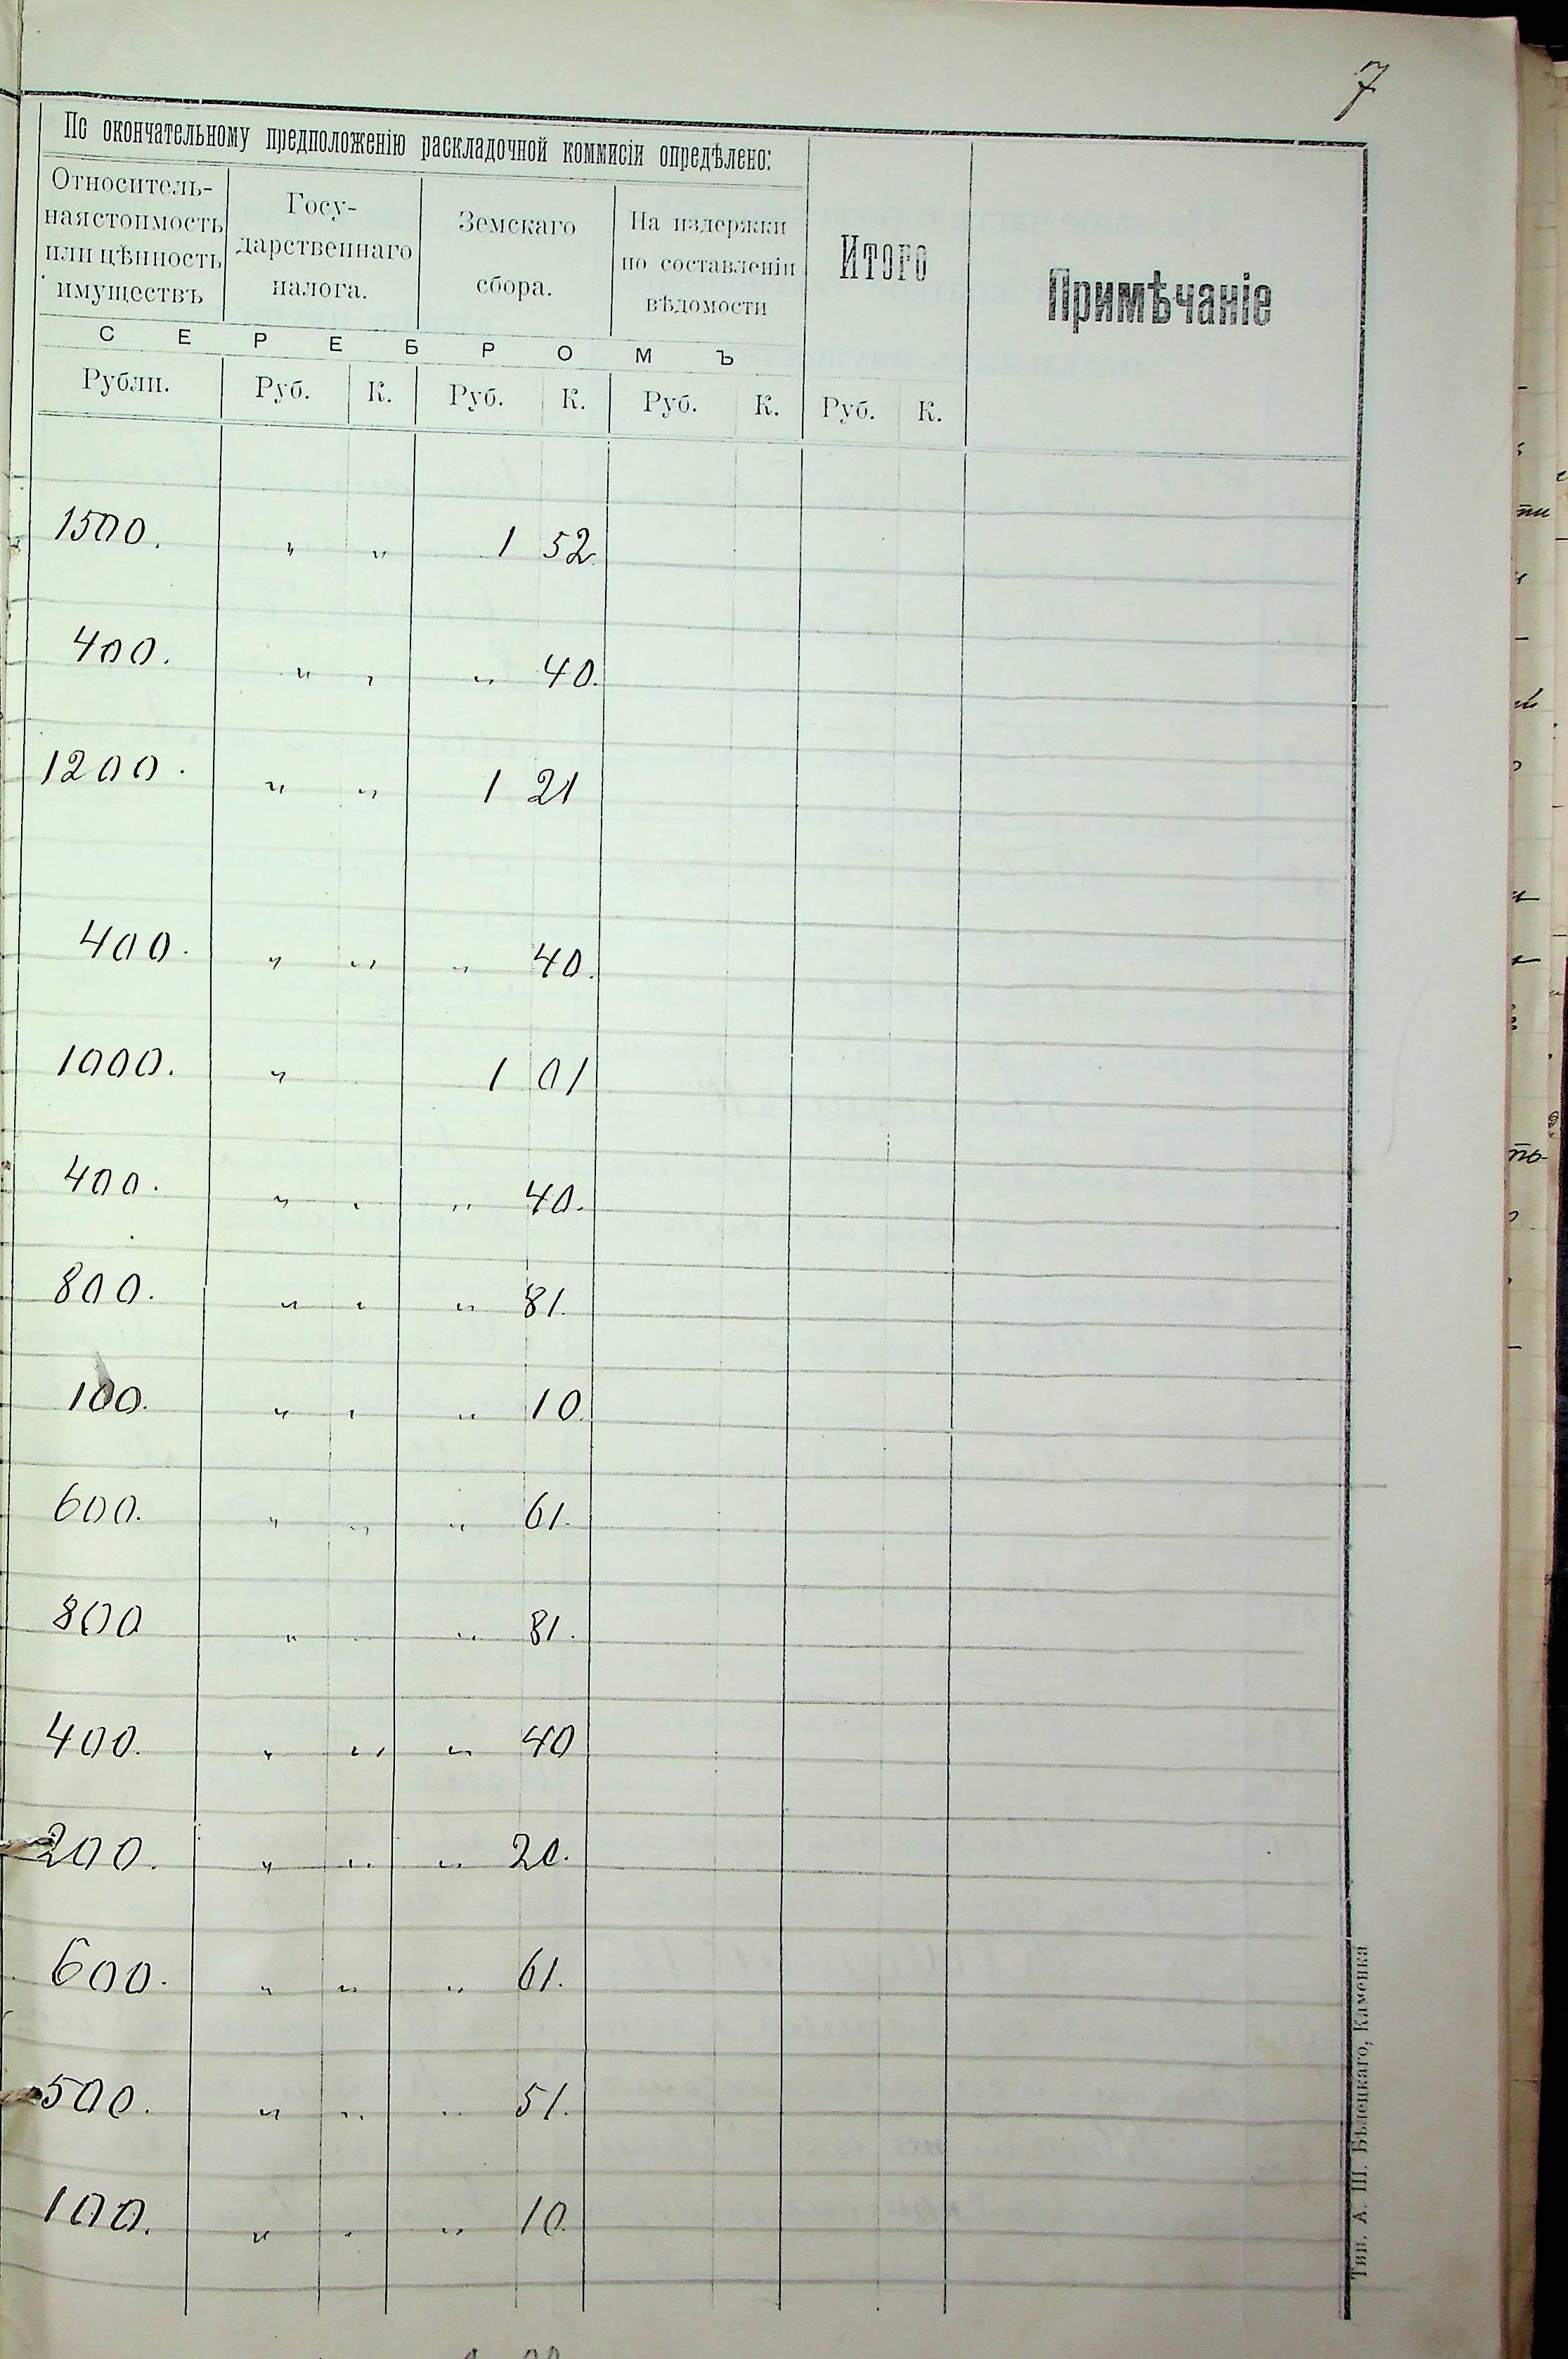 7
По окончательному предположенію раскладочной коммисіи опредѣлено:
Относитель-
ная стоимость
или цѣнность
имуществъ
Госу-
дарственнаго
налога.
Земскаго
сбора.
На издержки
по составленіи
вѣдомости
Итого
Примѣчаніе
С Е Р Е Б Р О М Ъ
Рубли. Руб. К. Руб. К. Руб. К. Руб. К.
1500. " " 1 52.
400. " " " 40.
1200. " " 1 21
400. " " " 40.
1000. " 1 01
400. " " " 40.
800. " " " 81.
100. " " " 10.
600. " " " 61.
800 " " " 81.
400. " " " 40
200. " " " 20.
600. " " " 61.
500. " " " 51.
100. " " " 10.
Тип. А. Ш. Бѣлецкаго, Каменка